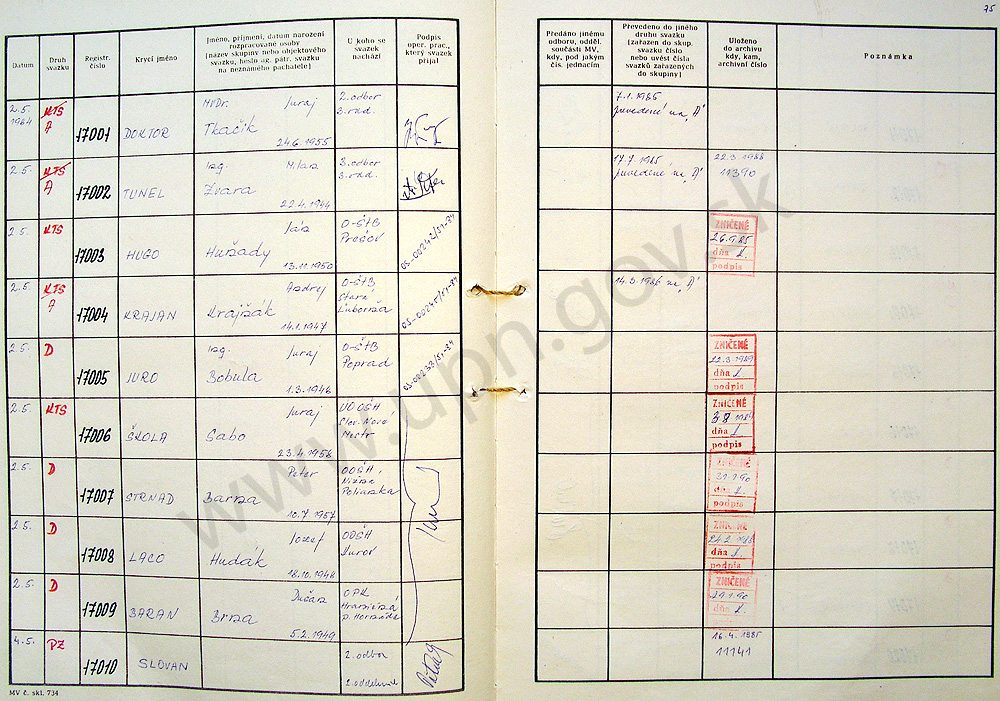 75
Datum
Druh svazku
Registr. číslo
Krycí jméno
Jméno, příjmení, datum narození
rozpracované osoby
(název skupiny nebo objektového
svazku, heslo ag. pátr. svazku
na neznámého pachatele)
U koho se
svazek
nachází
Podpis
oper. prac.,
který svazek
přijal
Předáno jinému
odboru, odděl.
součásti MV,
kdy, pod jakým
čís. jednacím
Převedeno do jiného
druhu svazku
(zařazen do skup.
svazku číslo
nebo uvést čísla
svazků zařazených
do skupiny)
Uloženo
do archivu
kdy, kam,
archivní číslo
Poznámka
2.5. 1984 KTS A 17001 DOKTOR MVDr. Juraj Tkáčik 24.6.1955 2. odbor
7.1.1985
prevedené na "A"
2.5. KTS A 17002 TUNEL Ing. Zvara 22.4.1944 3. odbor
17.7.1985
prevedené na "A"
22.3.1988
11390
2.5. KTS 17003 HUGO Ján 13.11.1950 O-ŠtB Prešov 05-00242/51-84
ZNIČENÉ
26.9.85
dňa
podpis
2.5. KTS A 17004 KRAJAN Andrej Krajžák 14.1.1947 O-ŠtB Stará Ľubovňa 05-00245/51-84
14.3.1986 na "A"
2.5. D 17005 JURO Ing. Juraj Bobula 1.3.1946 O-ŠtB Poprad 05-00233/51-84
ZNIČENÉ
dňa
podpis
2.5. KTS 17006 ŠKOLA Juraj Sabo 23.4.1956 OOŠH
ZNIČENÉ
dňa
podpis
2.5. D 17007 STRNAD Peter Barna 10.7.1957 OOŠH Nižná Polianka
dňa
podpis
2.5. D 17008 LACO Jozef Hudák 18.10.1948 OOŠH
ZNIČENÉ
dňa
podpis
2.5. D 17009 BARAN Dušan 5.2.1949 OPK
ZNIČENÉ
dňa
4.5. PZ 17010 SLOVAN 2. odbor 2. oddelenie
16.4.1985
11141
MV č. skl. 734
www.upn.gov.sk